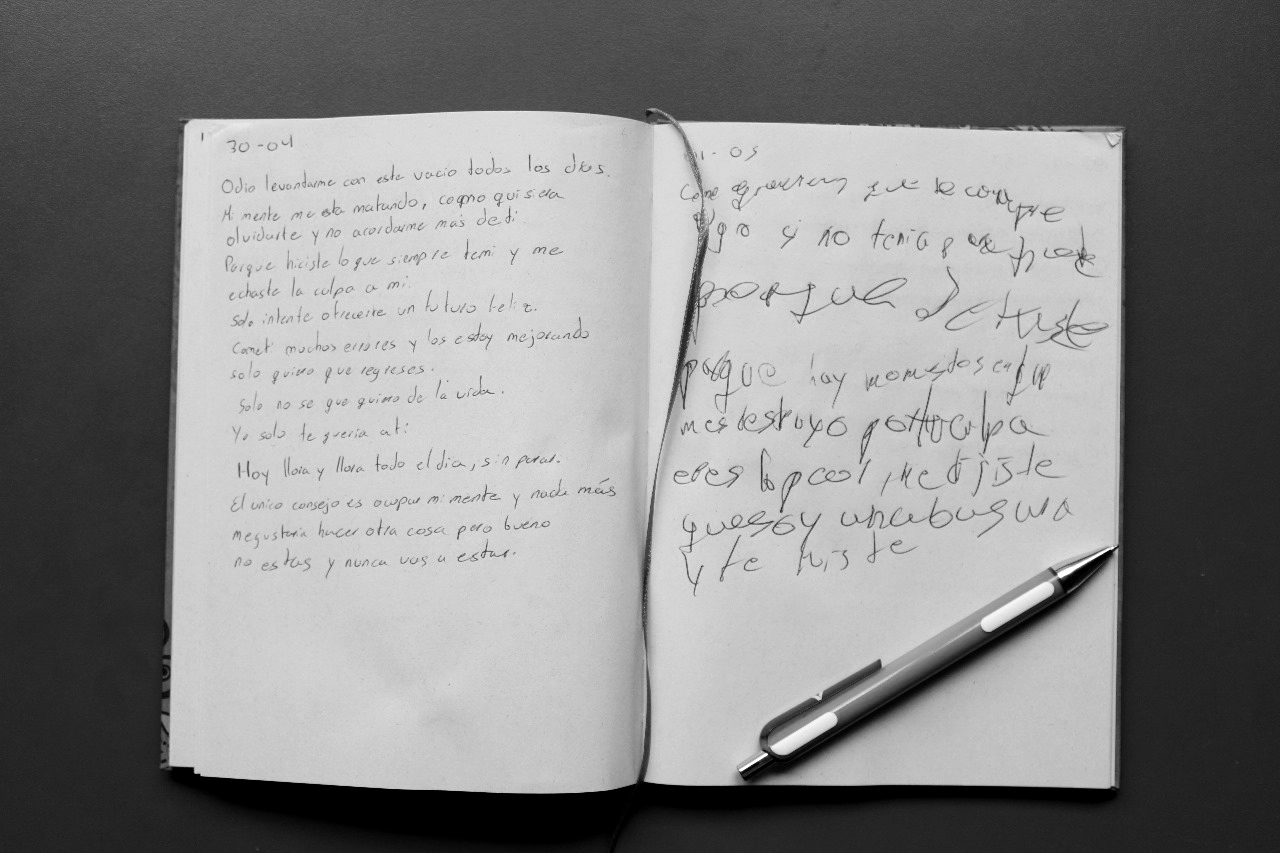 30-04
Odio levantarme con este vacio todos los dias.
Mi mente me esta matando, como quisiera
olvidarte y no acordarme más de ti
Porque hiciste lo que siempre temi y me
echaste la culpa a mi.
Solo intente ofrecerte un futuro feliz.
Cometi muchos errores y los estoy mejorando
solo quiero que regreses.
Solo no se que quiero de la vida.
Yo solo te queria a ti
Hoy llora y llora todo el dia, sin parar.
El unico consejo es ocupar mi mente y nada más
megustaria hacer otra cosa pero bueno
no estas y nunca vas a estar.
05
que le compre
si no tenia
porque
porque hay momentos en que
me destruyo por tu culpa
eres lo peor, me dijiste
que soy una basura
y te fuiste